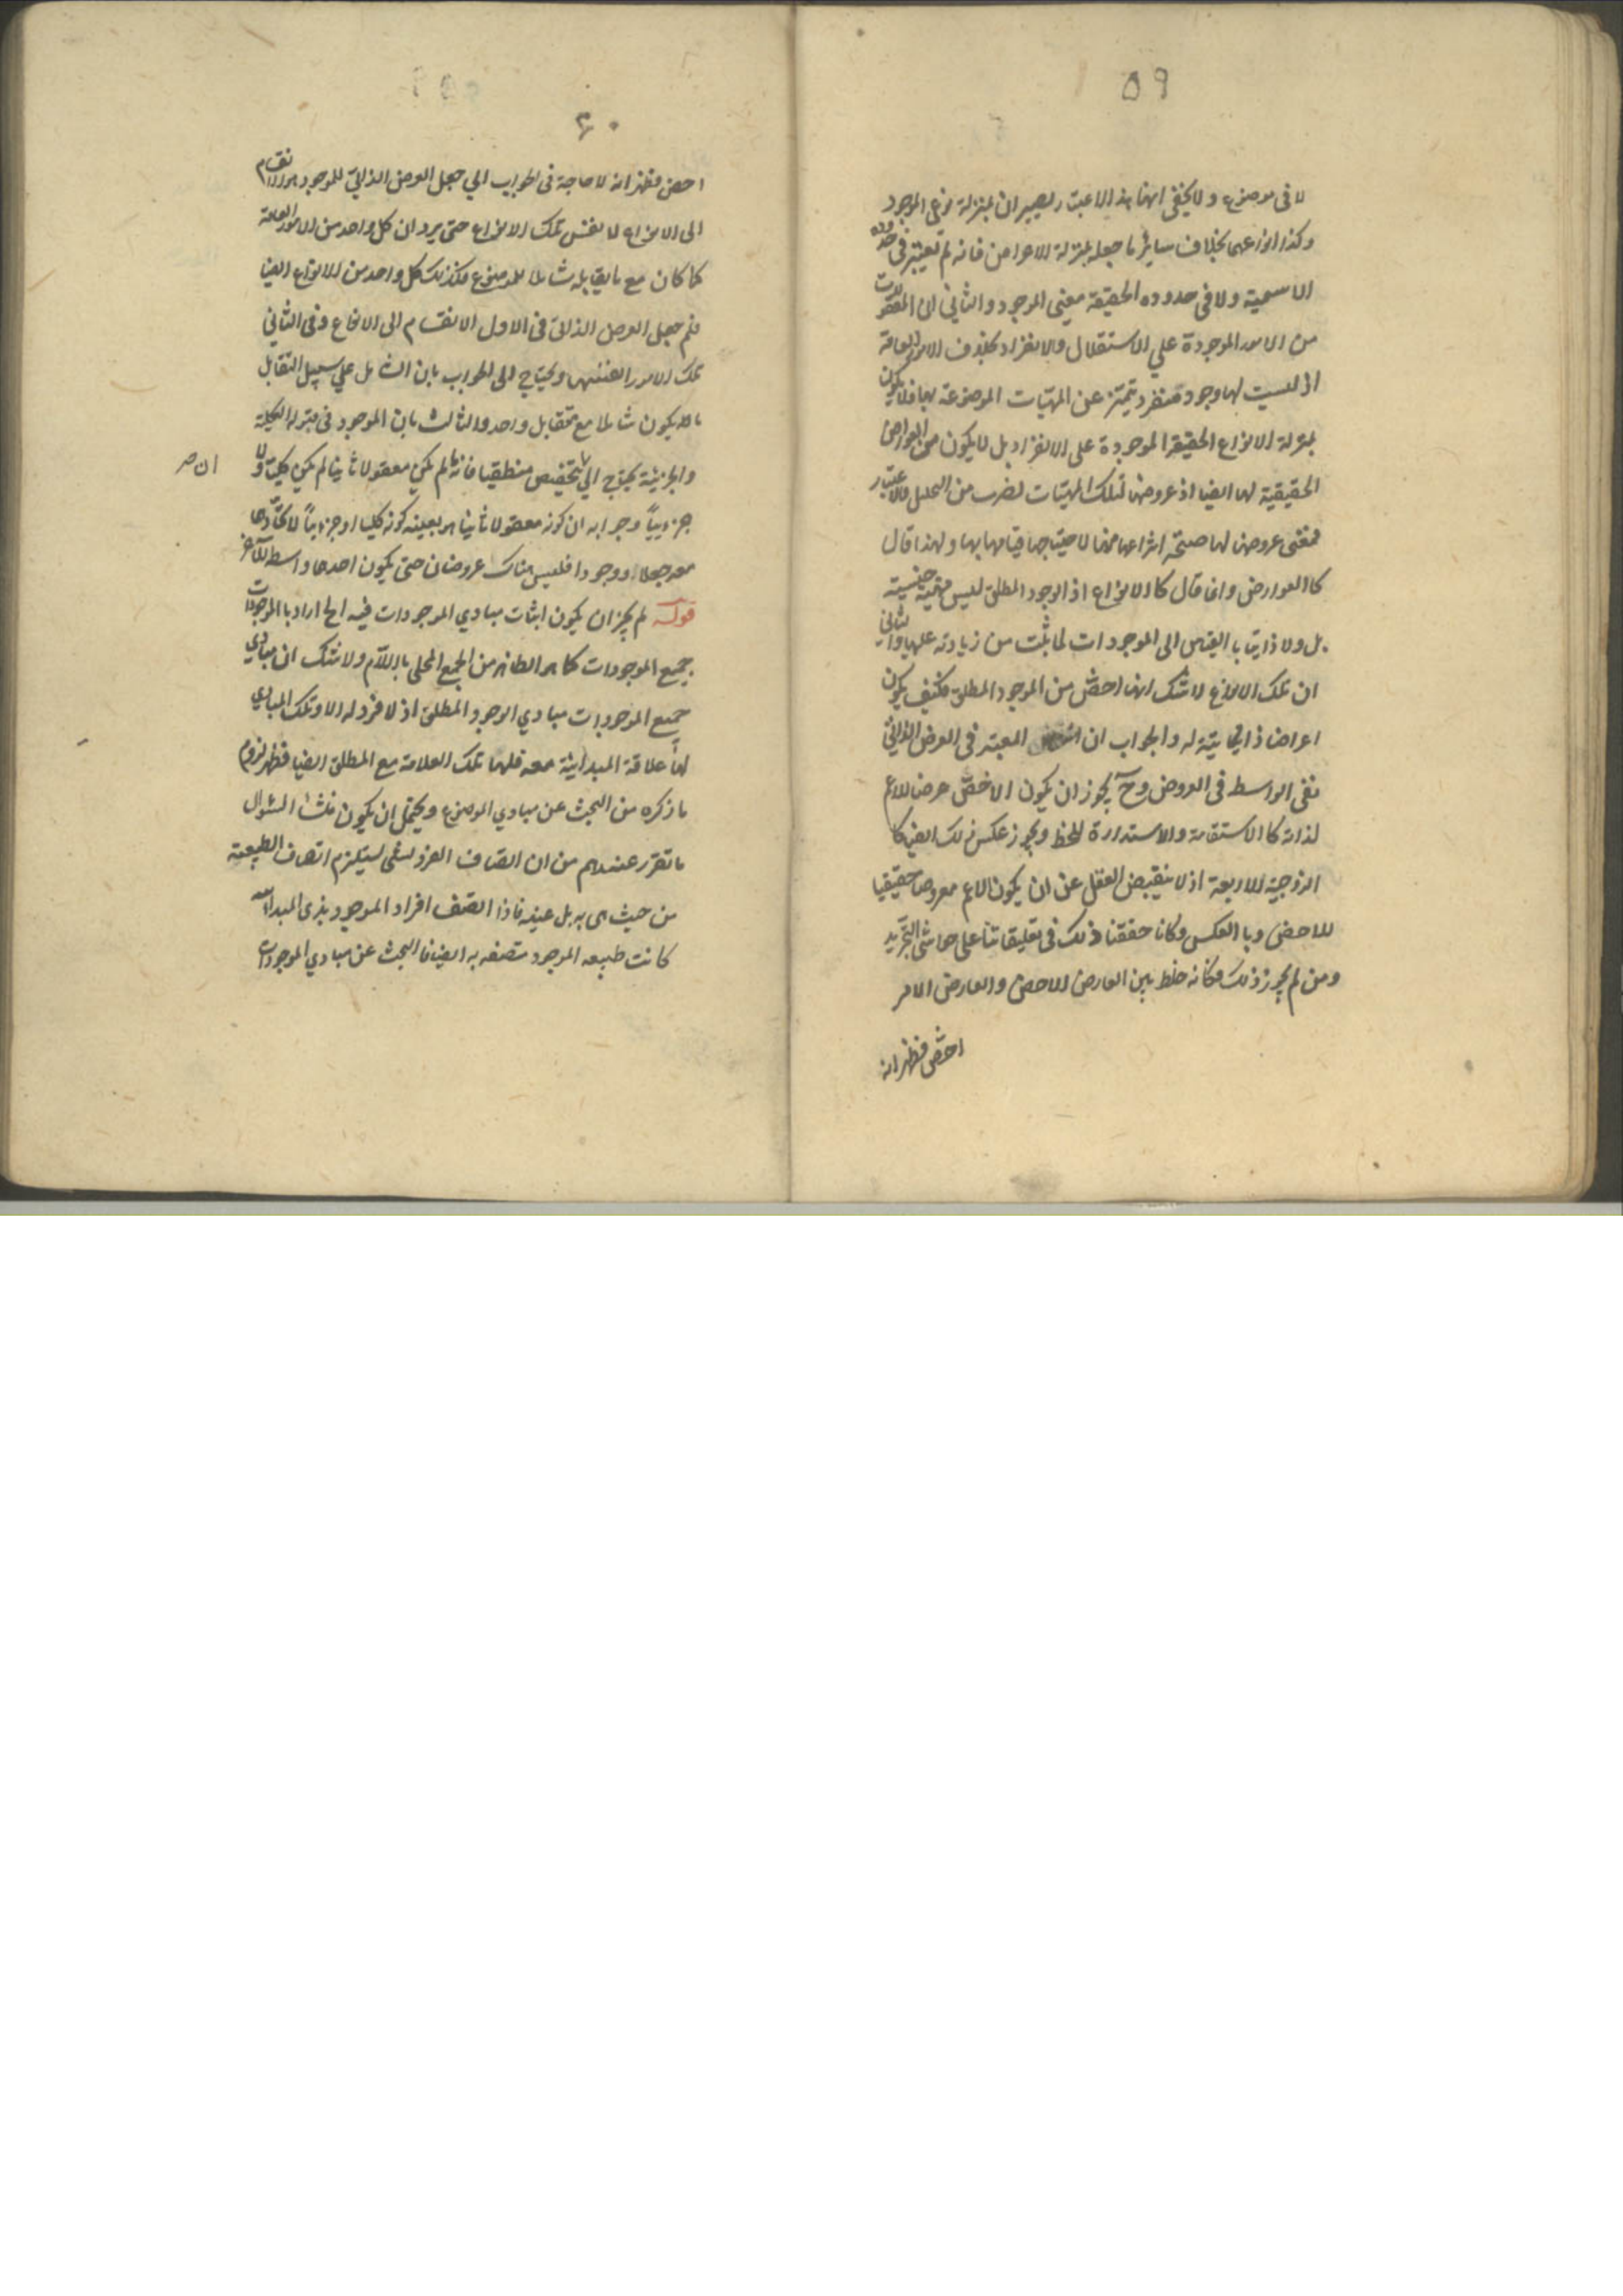 ٥٩
لا فى موضوع ولا يخفى انهما بهذا الاعتبار يصيران بمنزلة نوعى الموجود
وكذا انواعهما بخلاف سائر ما جعله بمنزلة الاعراض فانه لم يعتبر فى حدوده
الاسمية ولا فى حدوده الحقيقة معنى الموجود والثاني ان المقولات
من الامور الموجودة علي الاستقلال والانفراد بخلاف الامور العامة
اذ ليست لها وجود منفرد يتميز عن المهيات الموضوعة لها فلا يكون
بمنزلة الانواع الحقيقة الموجودة على الانفراد بل لا يكون من العوارض
الحقيقية لها ايضا اذ عروضها لتلك المهيات لضرب من التحليل والاعتبار
فمعنى عروضها لها صحة انتزاعها منها لا حيثيتها قيامها بها ولهذا قال
كالعوارض وانما قال كالانواع اذ الوجود المطلق ليس مهية جنسية
بل ولا ذاتيا بالقياس الى الموجودات لما ثبت من زيادته عليها والثاني
ان تلك الانواع لا شك انها اخص من الموجود المطلق فكيف يكون
اعراضا ذاتية له والجواب ان المعتبر فى العرض الذاتي
نفى الواسط فى العروض وح يجوز ان يكون الاخص عرضا للاعم
لذاته كالاستقامة والاستدارة للخط ويجوز عكس ذلك ايضا كا
الزوجية للاربعة اذ لا ينقبض العقل عن ان يكون الاعم معروضا حقيقيا
للاخص وبالعكس وكنا حققنا ذلك فى تعليقاتنا على حواشى التجريد
ومن لم يجوز ذلك فكانه خلط بين العارض للاخص والعارض لامر
اخص فظهر انه
٦٠
اخص فظهر انه لا حاجة فى الجواب الي جعل العرض الذاتي للموجود هو الانقسام
الى الانواع لا نفس تلك الانواع حتى يرد ان كل واحد من الامور العامة
كما كان مع ما يقابله شاملا للموضوع فكذلك كل واحد من الانواع ايضا
فلم جعل العرض الذاتى فى الاول الانقسام الى الانواع وفى الثاني
تلك الامور انفسها ويحتاج الى الجواب بان الشامل علي سبيل التقابل
ما لا يكون شاملا مع مقابل واحد والثالث بان الموجود فى قبوله الكلية
والجزئية يحتاج الي تخصيص منطقيا فانه ما لم يكن معقولا ثانيا لم يكن كليا ولا
ان صر
جزئيا وجوابه ان كونه معقولا ثانيا هو بعينه كونه كليا او جزئيا لاتحادهما
معه جعلا ووجودا فليس هناك عروضان حتى يكون احدهما واسطه للآخر
قوله لم يجز ان يكون اثبات مبادي الموجودات فيه الخ اراد بالموجودات
جميع الموجودات كما هو الظاهر من الجمع المحلى باللام ولا شك ان مبادي
جميع الموجودات مبادي الوجود المطلق اذ لا فرد له الا وتلك المبادي
لها علاقة المبدائية معه فلها تلك العلاقة مع المطلق ايضا فظهر لزوم
ما ذكره من البحث عن مبادي الموضوع ويحتمل ان يكون منشأ السئوال
ما تقرر عندهم من ان اتصاف الفرد لشى يستلزم اتصاف الطبيعة
من حيث هى به بل عينه فاذا اتصف افراد الموجود بذى المبدائية
كانت طبيعه الموجود متصفه به ايضا فالبحث عن مبادي الموجودات